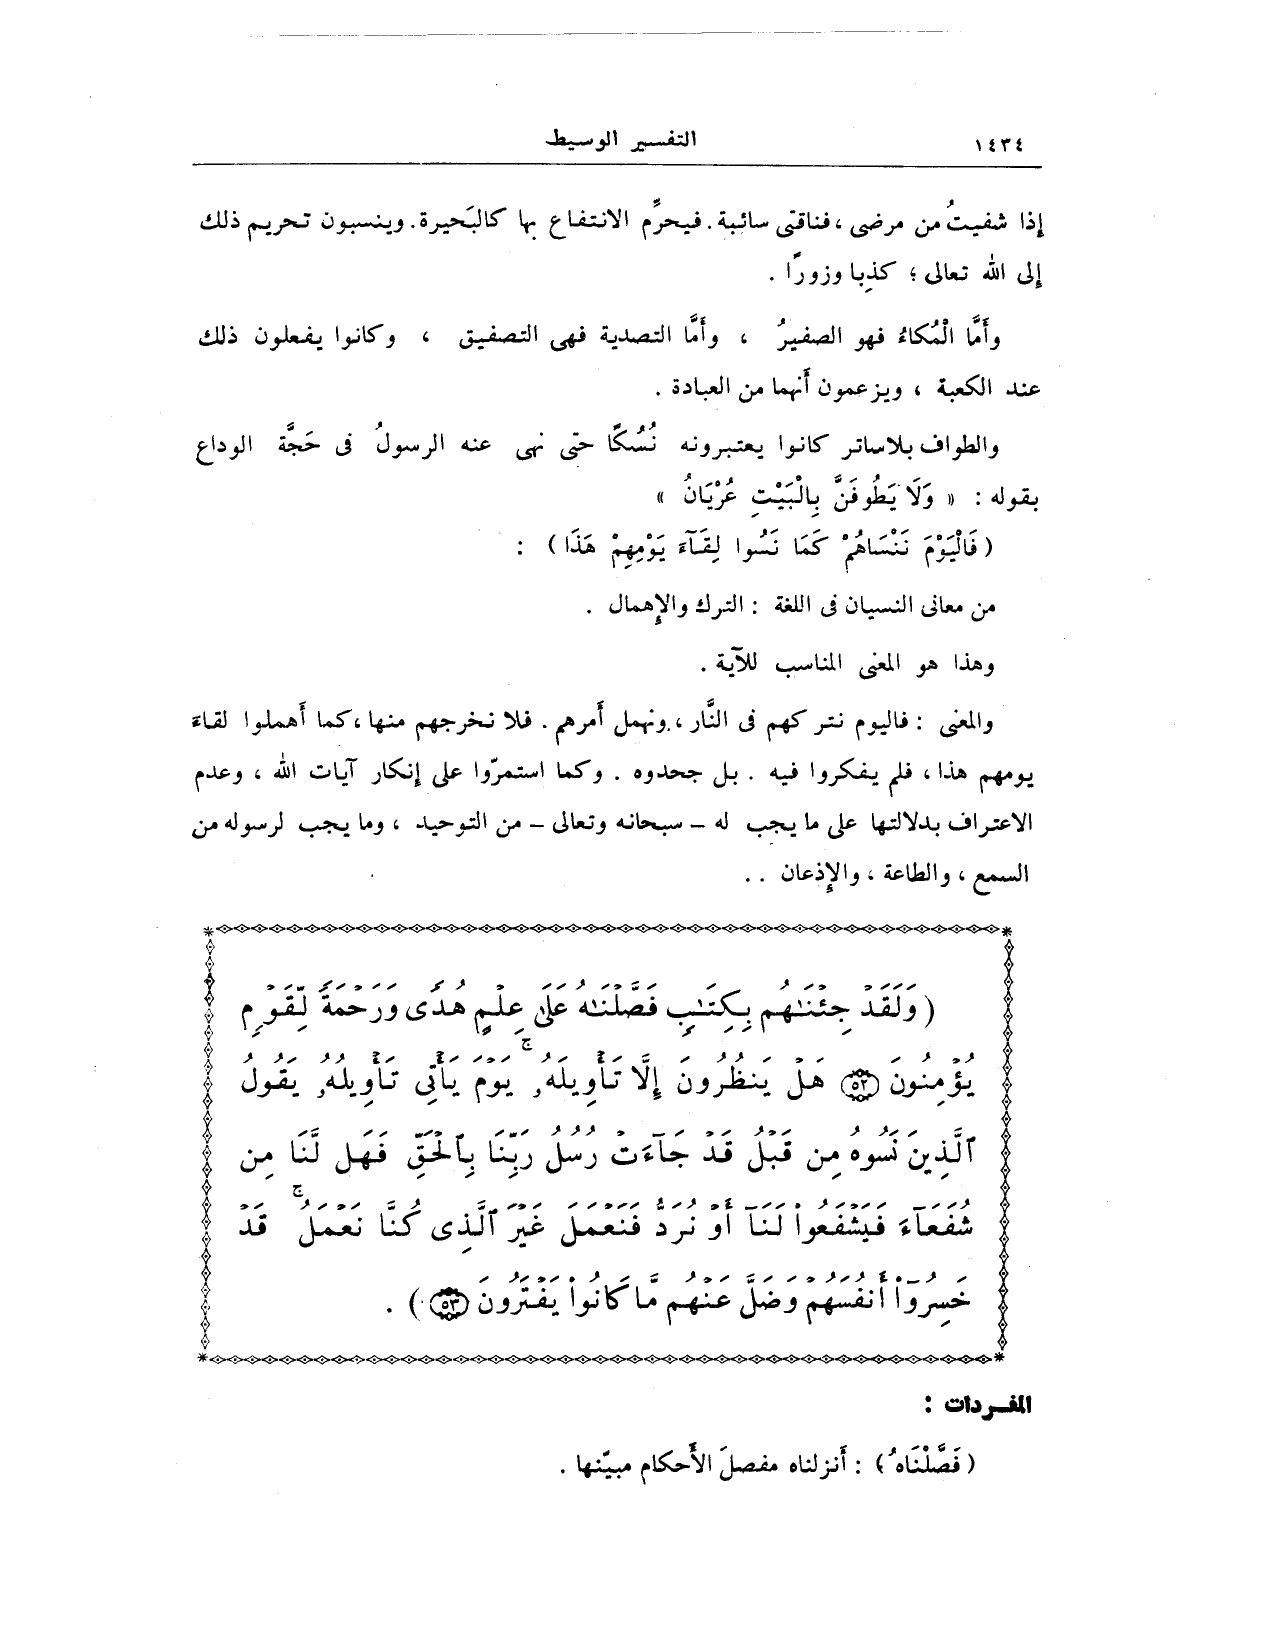 ١٤٣٤ التفسير الوسيط
إذا شفيتُ من مرضى ، فناقتى سائبة . فيحرَّم الانتفاع بها كالبَحيرة . وينسبون تحريم ذلك
إلى الله تعالى ؛ كذِبا وزورًا .
وأَمَّا الْمُكاءُ فهو الصفيرُ ، وأَمَّا التصدية فهى التصفيق ، وكانوا يفعلون ذلك
عند الكعبة ، ويزعمون أَنهما من العبادة .
والطواف بلا ساتر كانوا يعتبرونه نُسُكًا حتى نهى عنه الرسولُ فى حَجَّة الوداع
بقوله : « وَلَا يَطُوفَنَّ بِالْبَيْتِ عُرْيَانُ »
( فَالْيَوْمَ نَنْسَاهُمْ كَمَا نَسُوا لِقَآءَ يَوْمِهِمْ هَذَا ) :
من معانى النسيان فى اللغة : الترك والإِهمال .
وهذا هو المعنى المناسب للآية .
والمعنى : فاليوم نتركهم فى النَّار ، ونهمل أَمرهم . فلا نخرجهم منها ، كما أَهملوا لقاءَ
يومهم هذا ، فلم يفكروا فيه . بل جحدوه . وكما استمرّوا على إنكار آيات الله ، وعدم
الاعتراف بدلالتها على ما يجب له – سبحانه وتعالى – من التوحيد ، وما يجب لرسوله من
السمع ، والطاعة ، والإِذعان . .
( وَلَقَدْ جِئْنَٰهُم بِكِتَٰبٍ فَصَّلْنَٰهُ عَلَىٰ عِلْمٍ هُدًى وَرَحْمَةً لِّقَوْمٍ
يُؤْمِنُونَ ﴿٥٢﴾ هَلْ يَنظُرُونَ إِلَّا تَأْوِيلَهُۥ ۚ يَوْمَ يَأْتِى تَأْوِيلُهُۥ يَقُولُ
ٱلَّذِينَ نَسُوهُ مِن قَبْلُ قَدْ جَآءَتْ رُسُلُ رَبِّنَا بِٱلْحَقِّ فَهَل لَّنَا مِن
شُفَعَآءَ فَيَشْفَعُوا۟ لَنَآ أَوْ نُرَدُّ فَنَعْمَلَ غَيْرَ ٱلَّذِى كُنَّا نَعْمَلُ ۚ قَدْ
خَسِرُوٓا۟ أَنفُسَهُمْ وَضَلَّ عَنْهُم مَّا كَانُوا۟ يَفْتَرُونَ ﴿٥٣﴾ ) .
المفـردات :
( فَصَّلْنَاهُ ) : أَنزلناه مفصلَ الأَحكام مبيّنها .